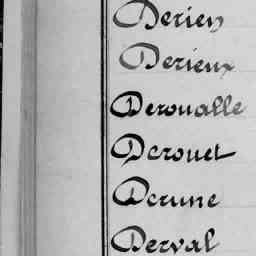 Derien
Derieux
Deroualle
Derouet
Derune
Derval